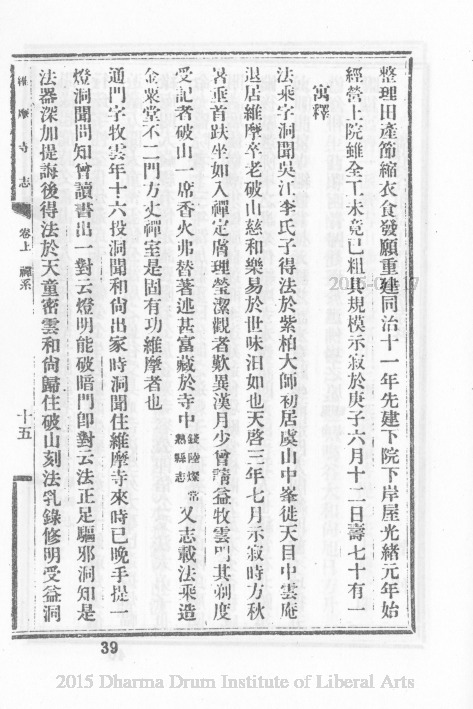 整理田產節縮衣食發願重建同治十一年先建下院下岸屋光緒元年始
經營上院雖全工未竟已粗具規模示寂於庚子六月十二日壽七十有一
寓釋
法乘字洞聞吳江李氏子得法於紫柏大師初居虞山中峯徙天目中雲庵
退居維摩卒老破山慈和樂易於世味泊如也天啓三年七月示寂時方秋
暑垂首趺坐如入禪定膚理瑩潔觀者歎異漢月少曾請益牧雲門其剃度
受記者破山一席香火弗替著述甚富藏於寺中 錢陸燦常熟縣志 又志載法乘造
金粟堂不二門方丈禪室是固有功維摩者也
通門字牧雲年十六投洞聞和尙出家時洞聞住維摩寺來時已晚手提一
燈洞聞問知曾讀書出一對云燈明能破暗門卽對云法正足驅邪洞知是
法器深加提誨後得法於天童密雲和尙歸住破山刻法乳錄修明受益洞
維摩寺志
卷上 禪系
十五
39
2015 Dharma Drum Institute of Liberal Arts